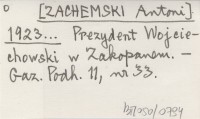 0
[ZACHEMSKI Antoni]
1923... Prezydent Wojcie-
chowski w Zakopanem. –
Gaz. Podh. 11, nr 33.